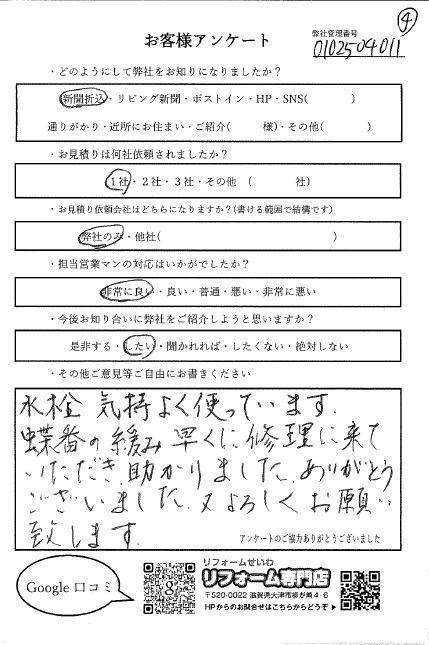 ④
お客様アンケート
弊社管理番号
0102504011
・どのようにして弊社をお知りになりましたか？
新聞折込・リビング新聞・ポストイン・HP・SNS(　　　)
通りがかり・近所にお住まい・ご紹介(　　　様)・その他(　　　)
・お見積りは何社依頼されましたか？
1社・2社・3社・その他　(　　　社)
・お見積り依頼会社はどちらになりますか？(書ける範囲で結構です)
弊社のみ・他社(　　　)
・担当営業マンの対応はいかがでしたか？
非常に良い・良い・普通・悪い・非常に悪い
・今後お知り合いに弊社をご紹介しようと思いますか？
是非する・したい・聞かれれば・したくない・絶対しない
・その他ご意見等ご自由にお書きください
水栓 気持よく使っています.
蝶番の緩み 早くに修理に来て
いただき、助かりました。ありがとう
ございました。又よろしくお願い
致します.
アンケートのご協力ありがとうございました
Google 口コミ
リフォームせいわ
リフォーム専門店
〒520-0022 滋賀県大津市柳が崎4-6
HPからのお問合せはこちらからどうぞ ▶